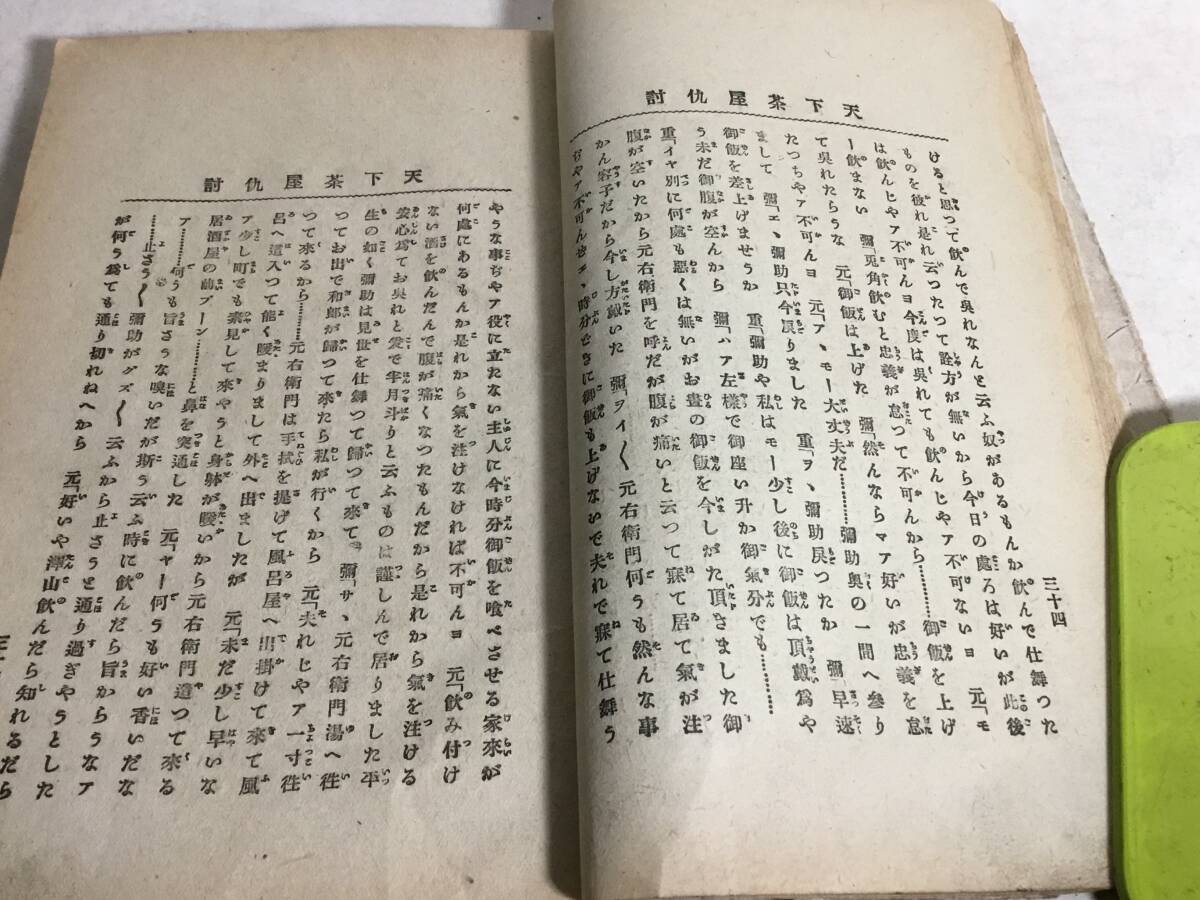 三十四
討仇屋茶下天
けると思つて飲んで呉れなんと云ふ奴があるもんか飲んで仕舞つた
ものを彼れ是れ云つたつて詮方が無いから今日の處ろは好いが此後
は飲んじやア不可んヨ今度は呉れても飲んじやア不可ないヨ 元「モ
ー飲まない 彌「兎角飲むと忠義が怠つて不可んから………御飯を上げ
て呉れたらうな 元「御飯は上げた 彌「然んならマア好いが忠義を怠
たつちやア不可んヨ 元「アヽモー大丈夫だ………彌助奥の一間へ參り
まして 彌「エヽ彌助只今戻りました 重「ヲヽ彌助戻つたか 彌「早速
御飯を差上げませうか 重「彌助や私はモー少し後に御飯は頂戴爲や
う未だ御腹が空んから 彌「ハア左樣で御座い升か御氣分でも………
重「イヤ別に何處も惡くは無いがお晝の御飯を今しがた頂きました御
腹が空いたから元右衛門を呼だが腹が痛いと云つて寐て居て氣が注
かん容子だから今し方戴いた 彌「ヲイ〳〵元右衛門何うも然んな事
ぢやア不可んぜエヽ時分どきに御飯も上げないで夫れで寐て仕舞う
討仇屋茶下天
やうな事ぢやア役に立たない主人に今時分御飯を喰べさせる家來が
何處にあるもんか是れから氣を注けなければ不可んヨ 元「飲み付け
ない酒を飲んだんで腹が痛くなつたもんだから是れから氣を注ける
安心爲てお呉れと爰で半月斗りと云ふものは謹しんで居りました平
生の如く彌助は見世を仕舞つて歸つて來て 彌「サヽ元右衛門湯へ徃
つてお出で和郎が歸つて來たら私が行くから 元「夫れじやア一寸徃
つて來るから………元右衛門は手拭を提げて風呂屋へ出掛けて來て風
呂へ這入つて能く暖まりまして外へ出ましたが 元「未だ少し早いな
ア少し町でも素見して來やうと身躰が暖いから元右衛門遣つて來る
居酒屋の前プーン………と鼻を突通した 元「ヤー何うも好い香いだな
ア………何うも旨さうな嗅いだが斯う云ふ時に飲んだら旨からうなア
………止さう〳〵彌助がグズ〳〵云ふから止さうと通り過ぎやうとした
が何う爲ても通り切れねへから 元「好いや澤山飲んだら知れるだら